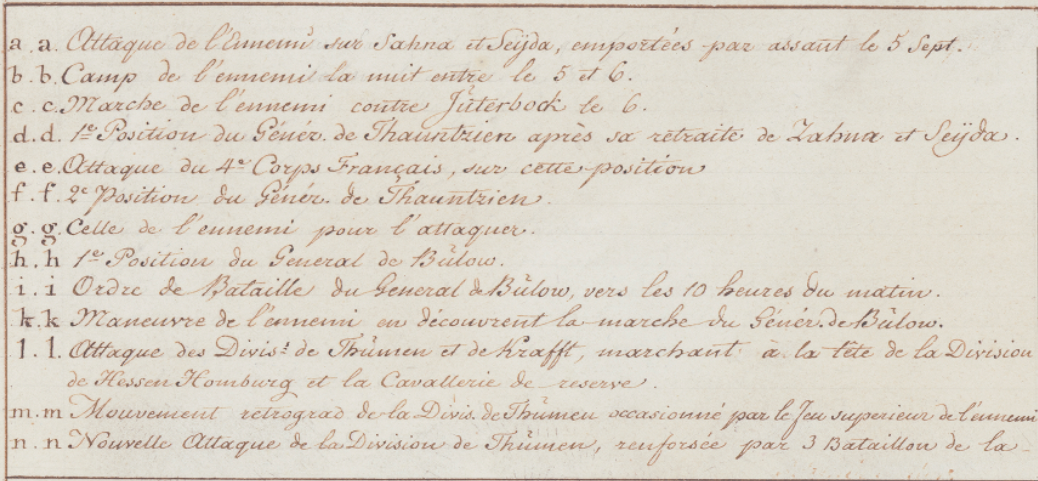 a . a. Attaque de l'Ennemi sur Sahna et Seÿda, emportées par assaut le 5 Sept.
b . b. Camp de l'ennemi la nuit entre le 5 et 6.
c . c. Marche de l'ennemi contre Jüterbock le 6.
d . d. 1e Position du Génér. de Thauntzien après sa retraite de Zahna et Seÿda.
e . e. Attaque du 4e Corps Français, sur cette position
f . f. 2e Position du Génér. de Thauntzien.
g . g. Celle de l'ennemi pour l'attaquer.
h . h 1e Position du General de Bülow.
i . i Ordre de Bataille du General de Bülow, vers les 10 heures du matin.
k . k Maneuvre de l'ennemi en découvrent la marche du Génér. de Bülow.
l . l. Attaque des Divis: de Thümen et de Krafft, marchant à la tête de la Division
de Hessen Homburg et la Cavallerie de reserve.
m . m Mouvement retrograd de la Divis. de Thümen occasionné par le feu superieur de l'ennemi
n . n Nouvelle Attaque de la Division de Thümen, renforsée par 3 Bataillon de la